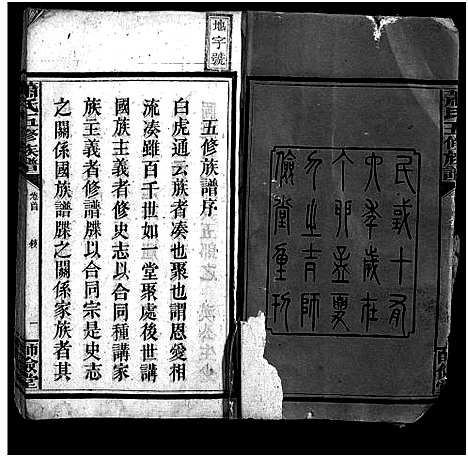 蕭氏五修族譜
師儉堂
民或十有
六年歲在
丁卯孟夏
月之吉師
儉堂重刊
地字號
五修族譜序
白虎通云族者湊也聚也謂恩愛相
流湊雖百千世如一堂聚處後世講
國族主義者修史志以合同種講家
族主義者修譜牒以合同宗是史志
之關係國族譜牒之關係家族者其
蕭氏五修族譜
卷首
一
師儉堂